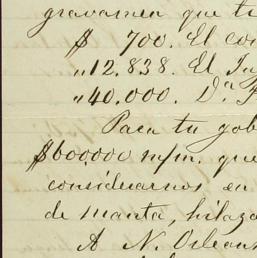 gravamen que
$ 700. El
" 12.838. El
" 40.000. D.ª F
Para tu gob
$600.000 m/m. que
considerarnos en
de manta, hilaza
A N. Orleans